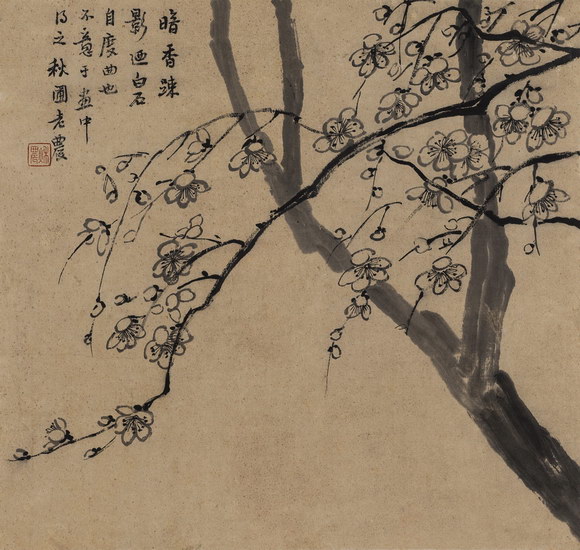 暗香疎
影画白石
自度曲也
不意于画中
得之秋圃老農